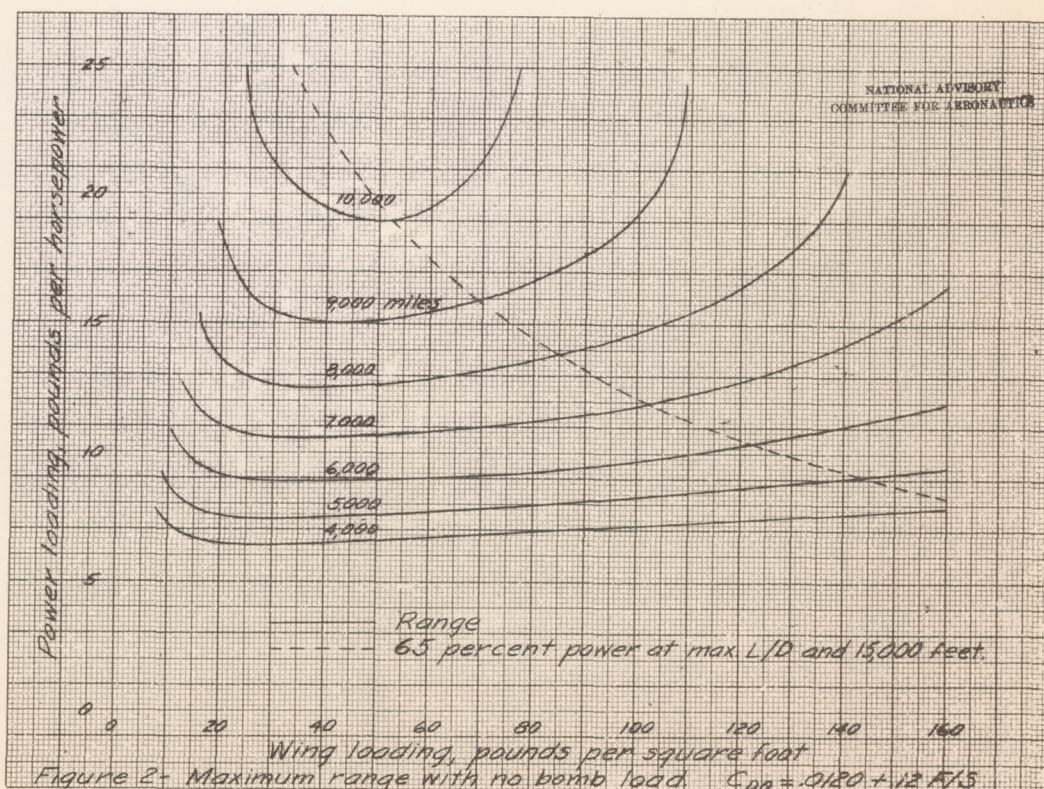 NATIONAL ADVISORY
COMMITTEE FOR AERONAUTICS
Power loading, pounds per horsepower
25
20
15
10
5
0
10,000
9,000 miles
8,000
7,000
6,000
5,000
4,000
Range
65 percent power at max L/D and 15,000 feet.
0 20 40 60 80 100 120 140 160
Wing loading, pounds per square foot
Figure 2- Maximum range with no bomb load. C_D0 = .0120 + 12 F/S